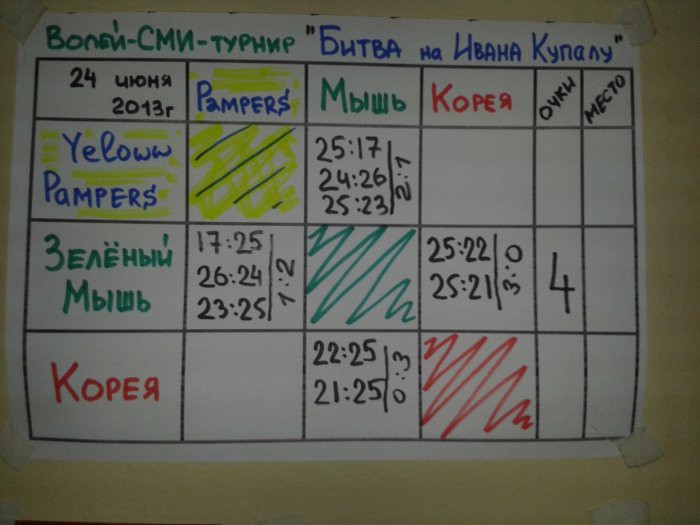 Волей-СМИ-турнир "Битва на Ивана Купалу"
24 июня
2013г
Pampers
Мышь
Корея
очки
место
Yeloww
Pampers
25:17
24:26
25:23
2:1
Зелёный
Мышь
17:25
26:24
23:25
1:2
25:22
25:21
3:0
4
Корея
22:25
21:25
0:3